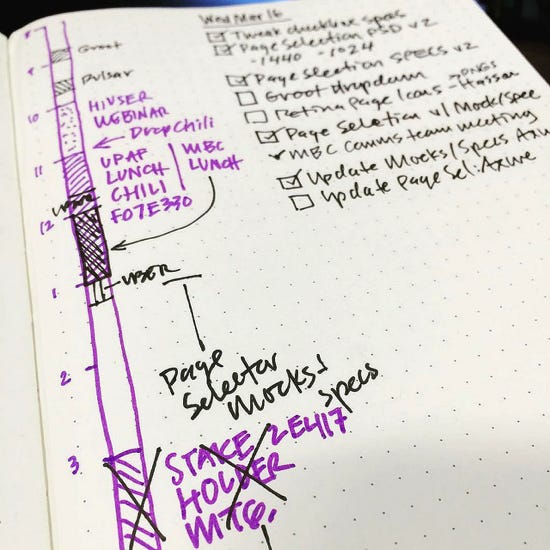 Wed Mar 16
Tweak checkbox specs
Page Selection PSD v2
-1440 -1024
Page Selection SPECS v2
Groot dropdown
Retina Page Icons - Hassan
PNGS
Page Selection v1 Mock/Spec
MBC comms team meeting
Update Mocks/Specs Azure
Update Page Sel. Azure
8
Groot
9
Pulsar
10
HIVSER
WEBINAR
Drop Chili
11
UPAP
LUNCH
CHILI
F07E330
MBC
LUNCH
UBER
12
1
UBER
Page
Selector
Mocks &
Specs
2
3
STAKE
HOLDER
MTG.
2E417